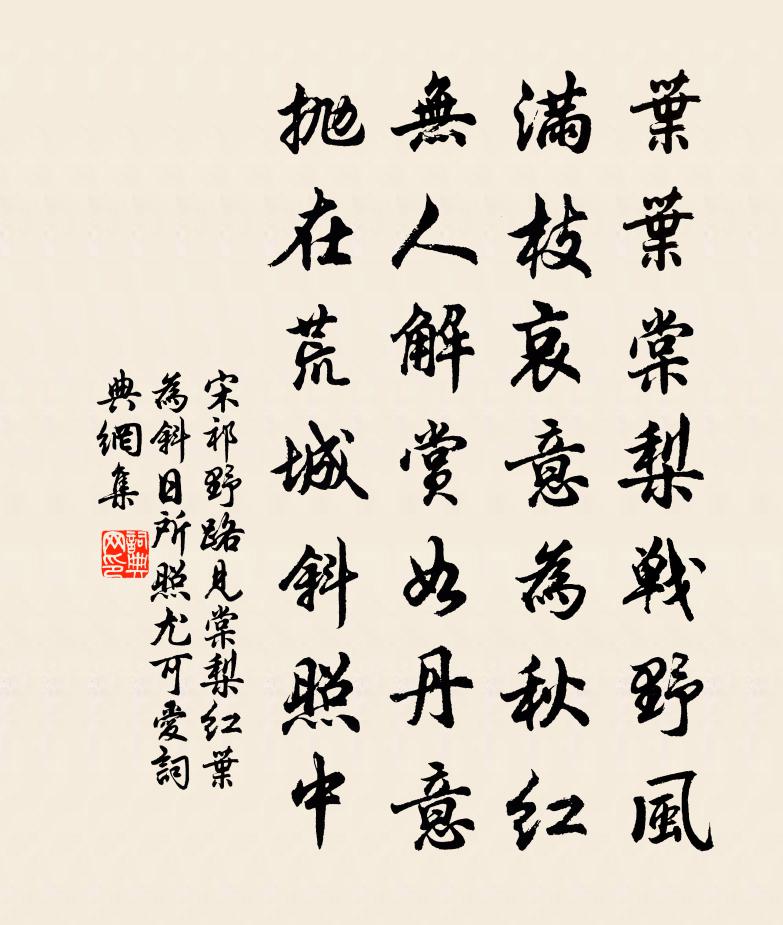 葉葉棠梨戰野風
滿枝哀意為秋紅
無人解賞如丹意
拋在荒城斜照中
宋祁野路見棠梨紅葉
為斜日所照尤可愛詞
典網集
詞典
网印